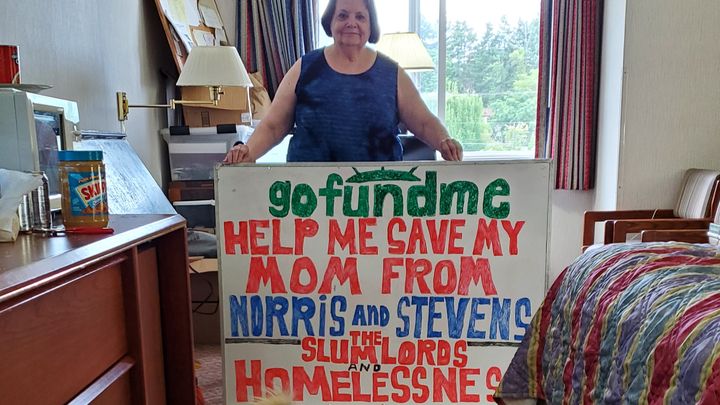 gofundme
HELP ME SAVE MY
MOM FROM
NORRIS AND STEVENS
THE
SLUMLORDS
AND
HOMELESSNES
SKIPPY